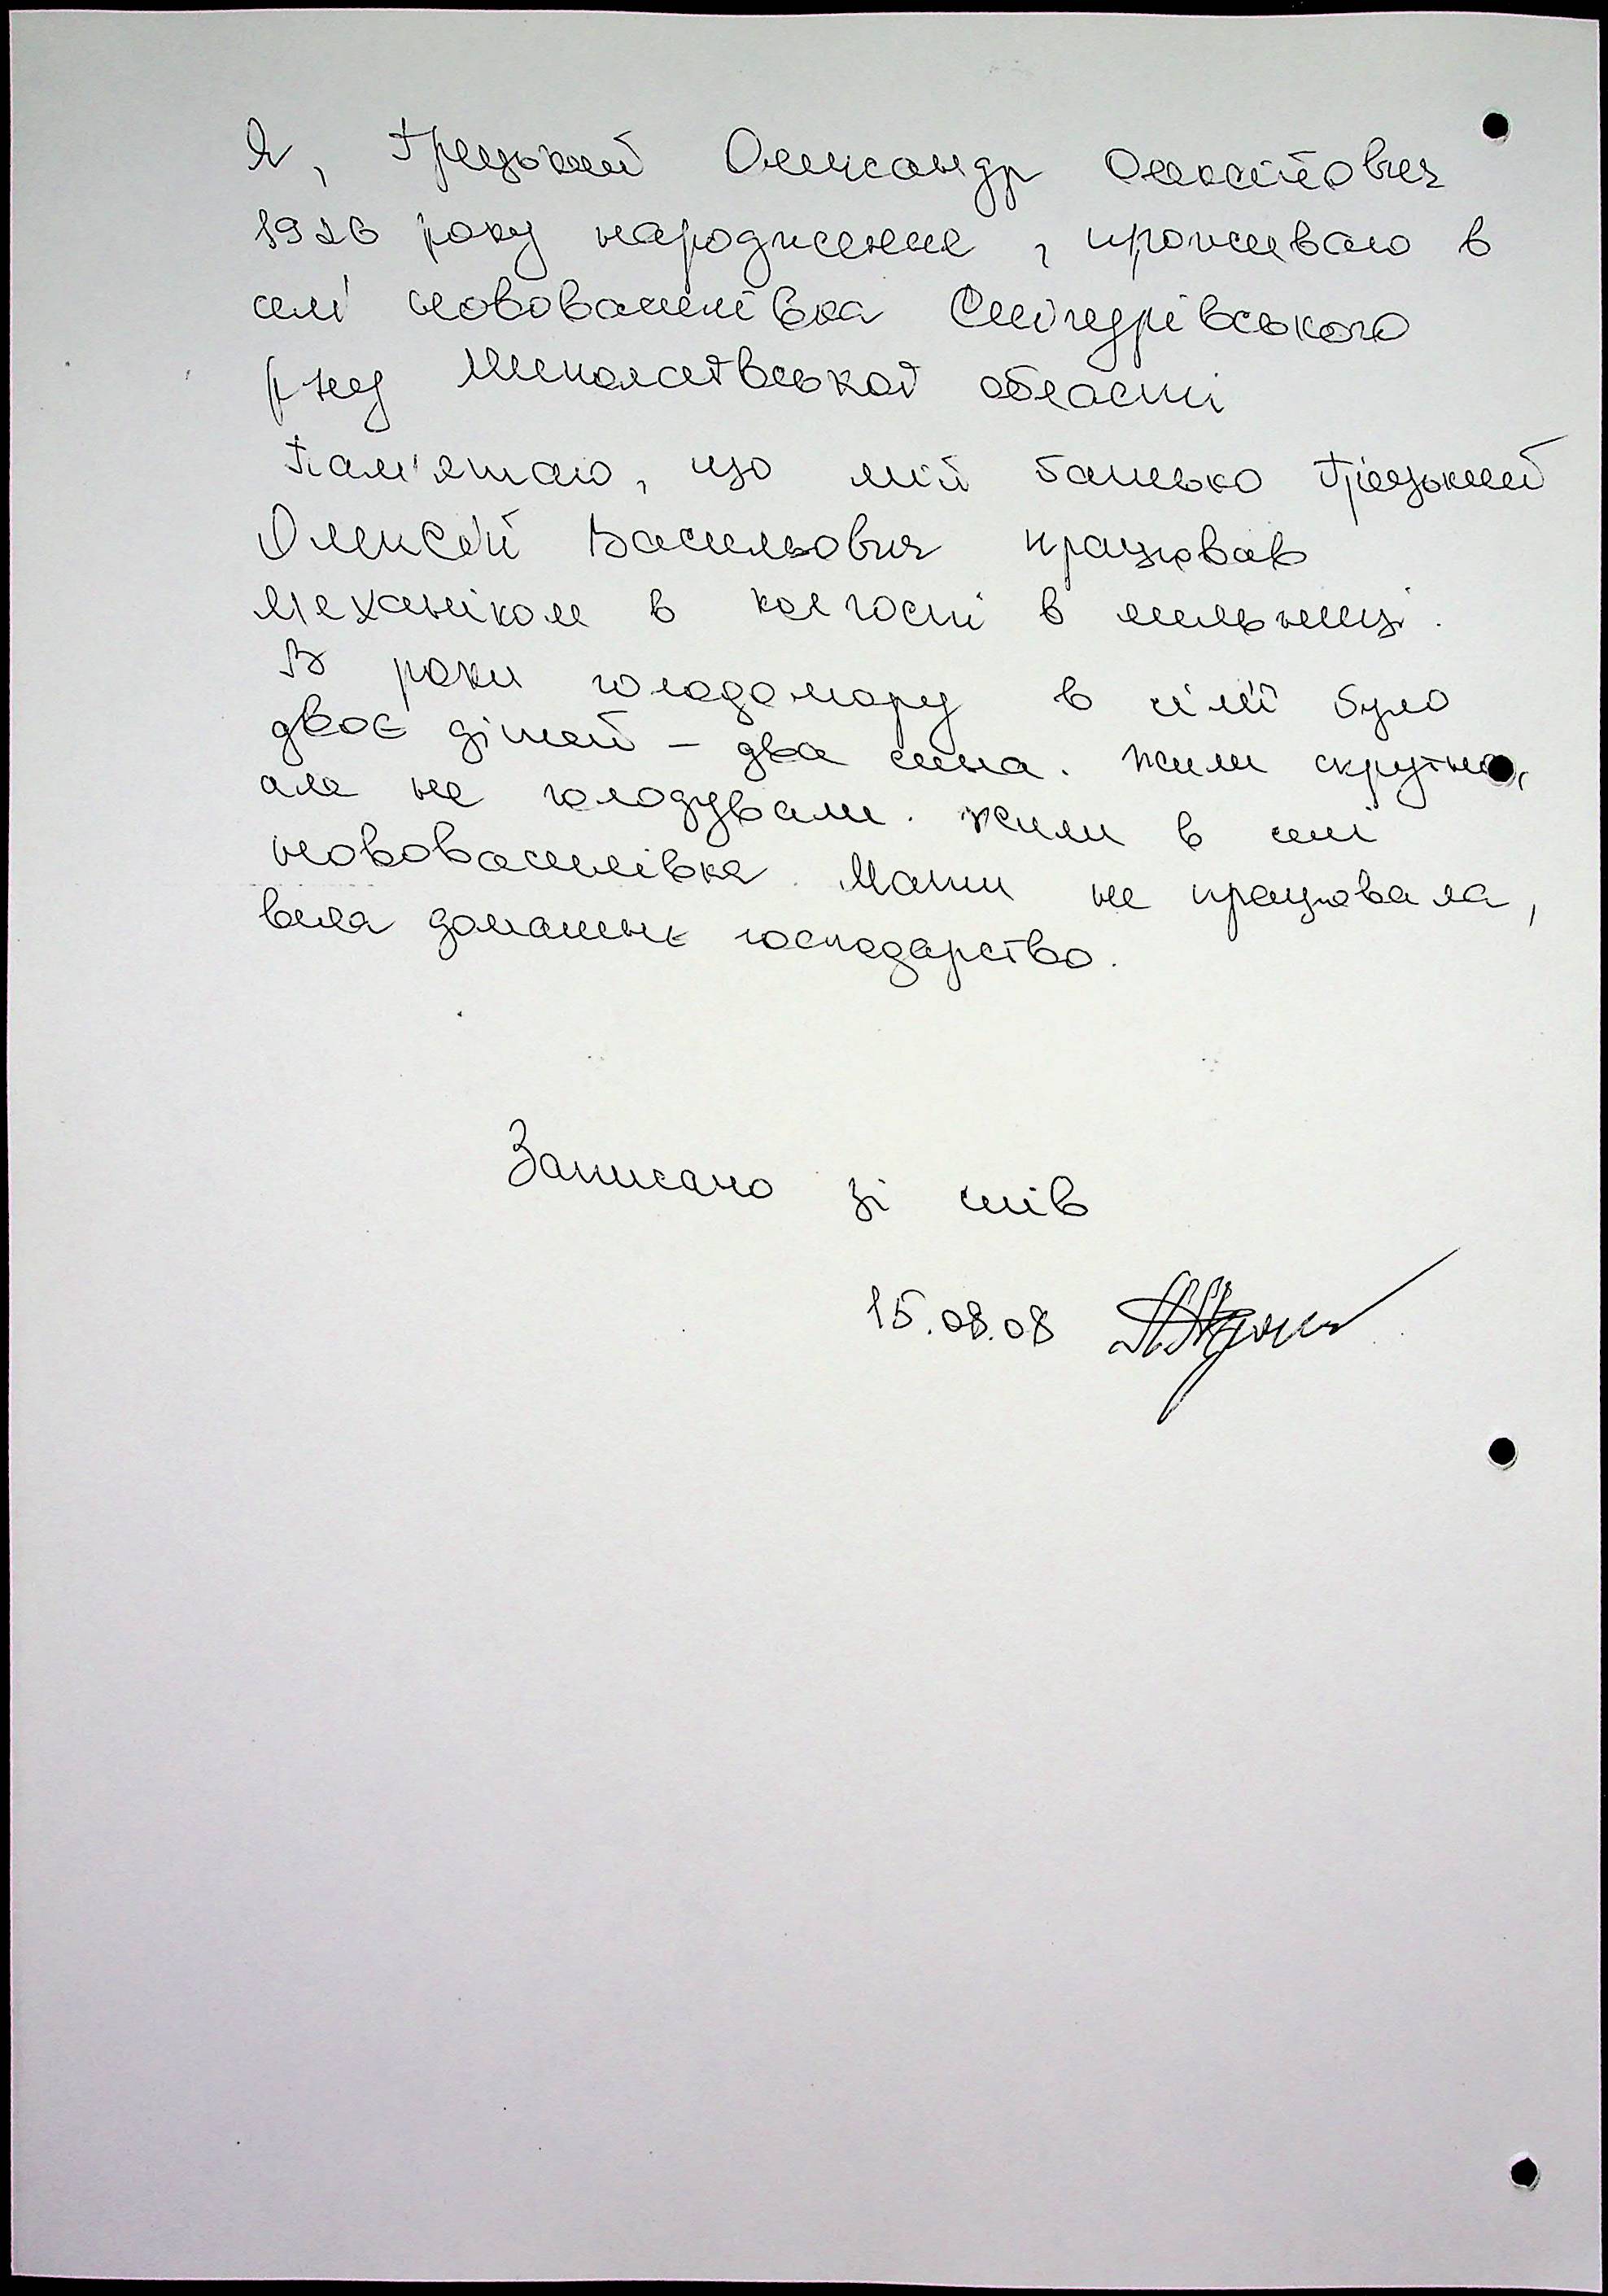 Я, Грецький Олександр Олексійович
1926 року народження, проживаю в
селі Нововасилівка Снігурівського
р-ну Миколаївської області
Пам'ятаю, що мій батько Грецький
Олексій Васильович працював
механіком в колгоспі в мельниці.
В роки голодомору в сім'ї було
двоє дітей – два сина. Жили скрутно,
але не голодували. Жили в селі
Нововасилівка. Мати не працювала,
вела домашнє господарство.
Записано зі слів
15.08.08